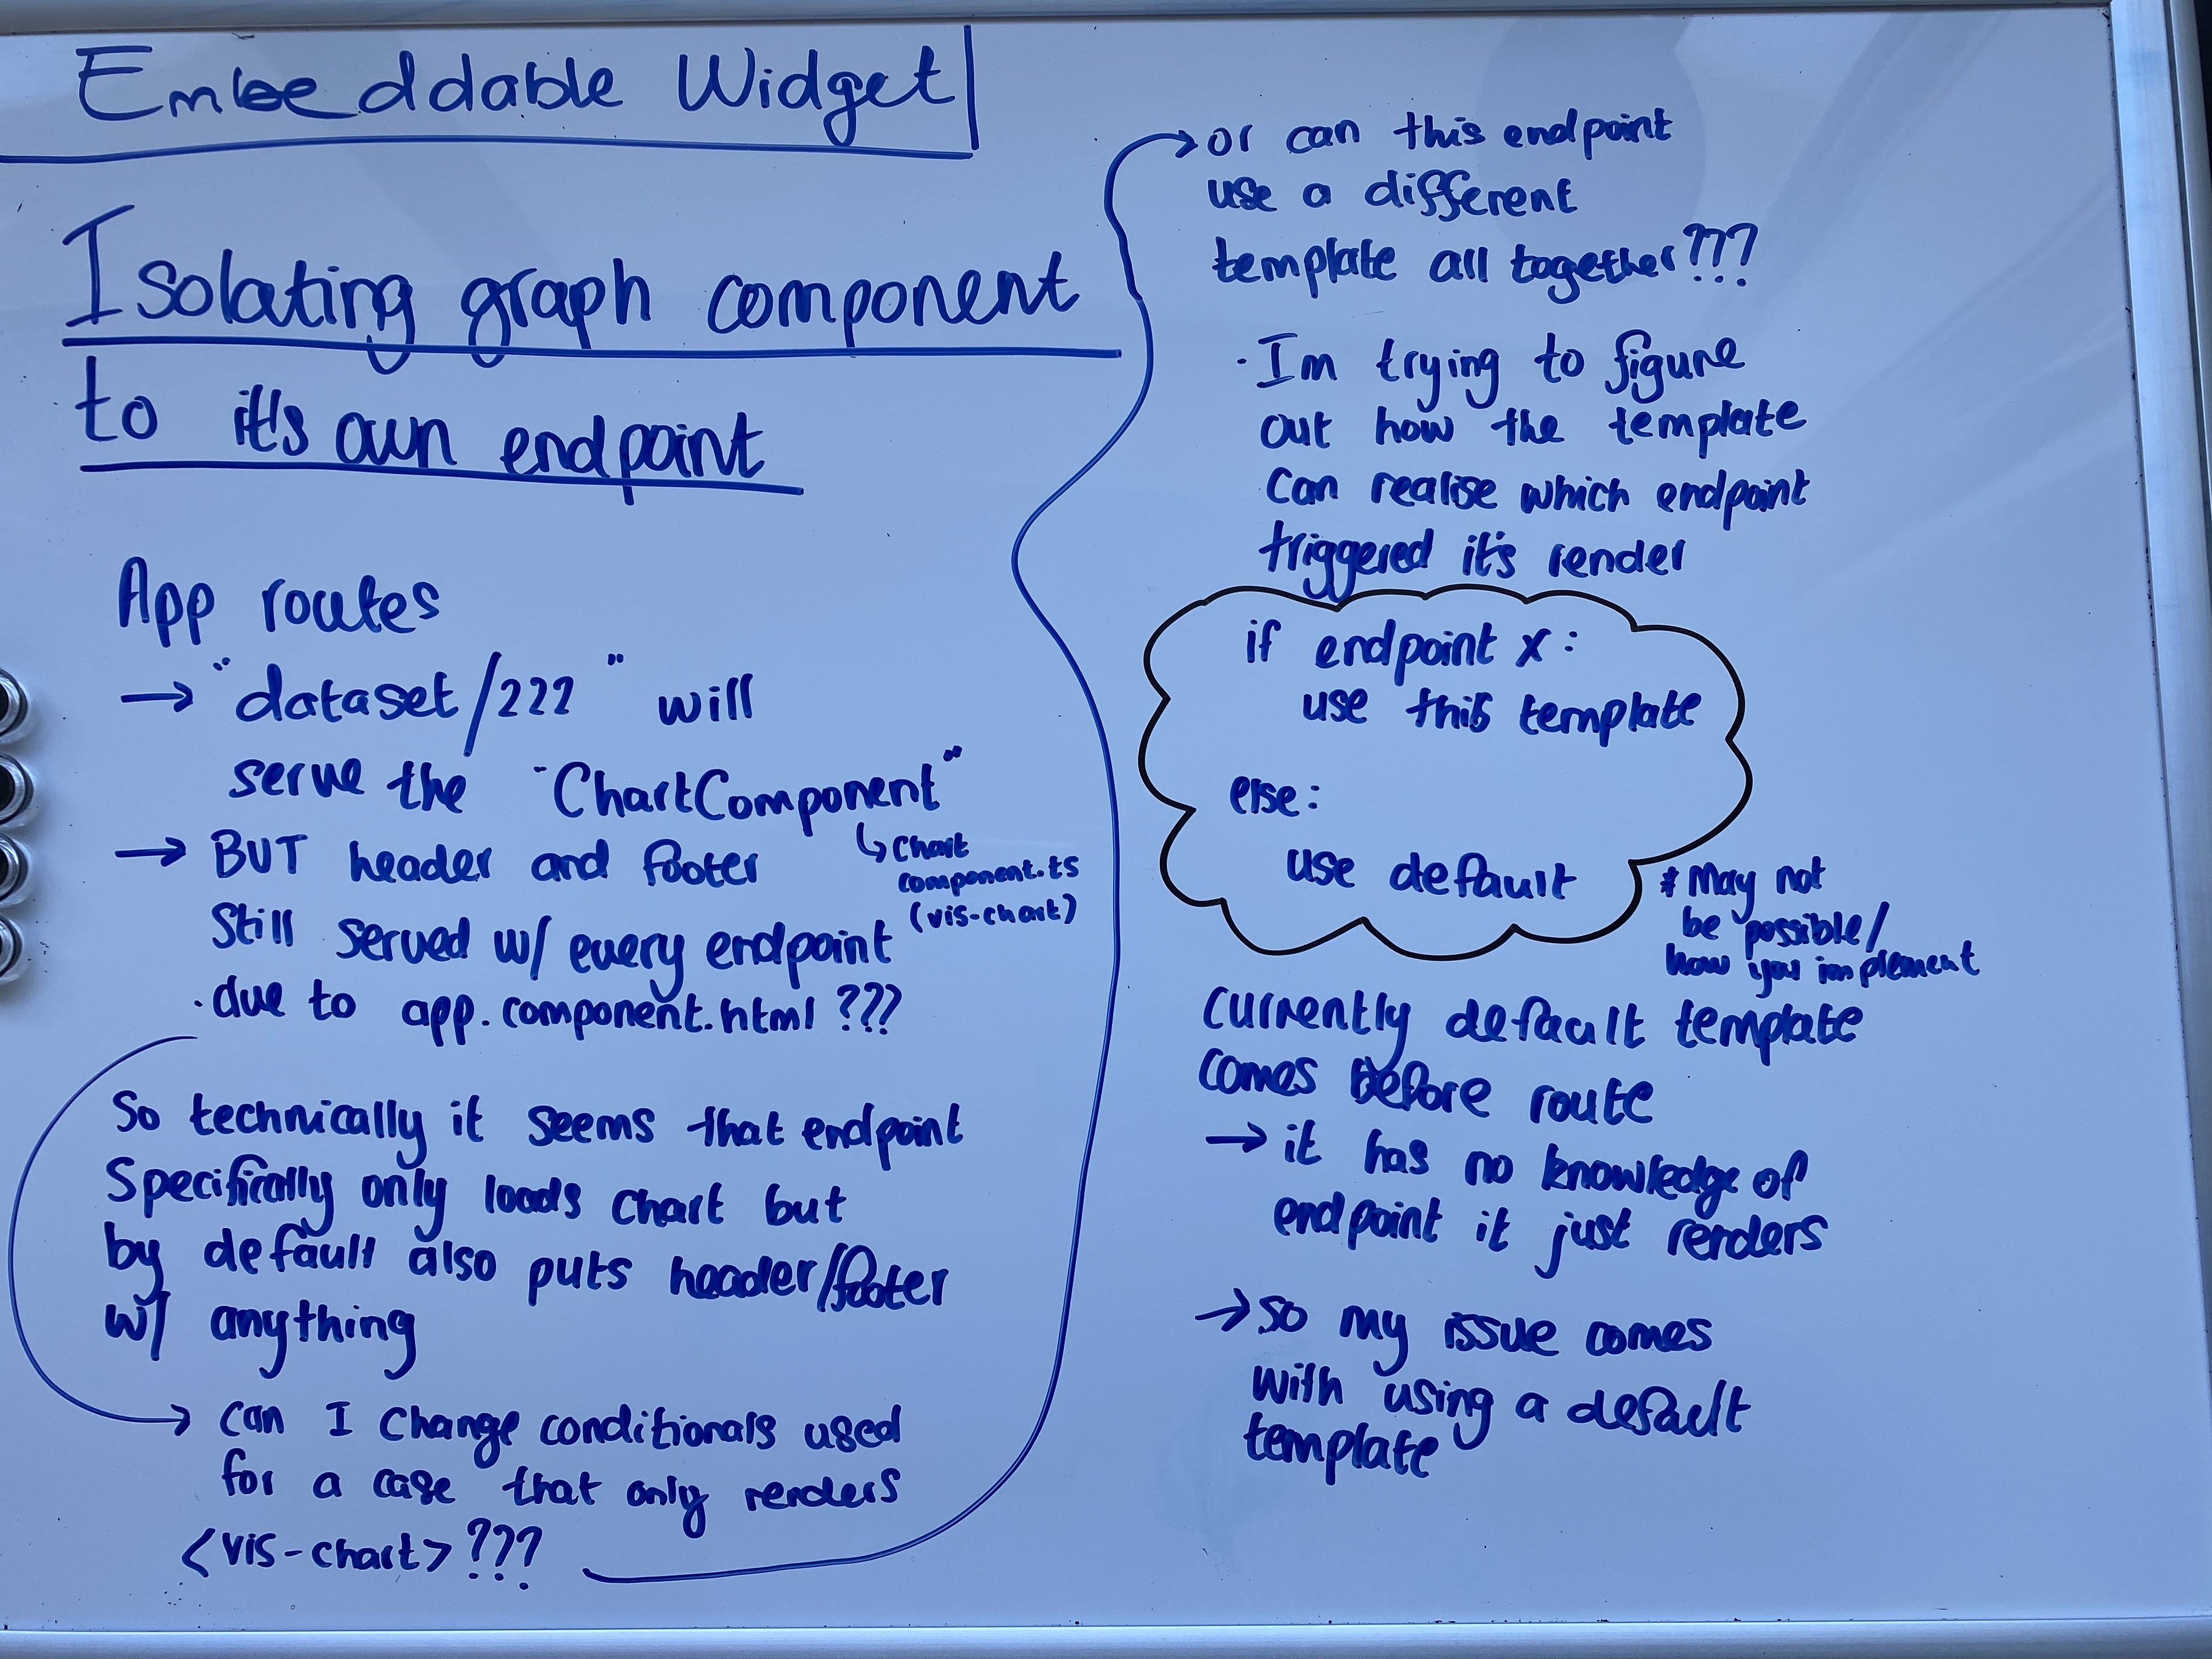 Embeddable Widget
Isolating graph component
to it's own endpoint
App routes
→ "dataset/222" will
serve the "ChartComponent"
↳ Chart
component.ts
(vis-chart)
→ BUT header and footer
Still served w/ every endpoint
· due to app.component.html ???
So technically it seems that endpoint
Specifically only loads chart but
by default also puts header/footer
w/ anything
→ can I change conditionals used
for a case that only renders
<vis-chart> ???
→ or can this endpoint
use a different
template all together???
· Im trying to figure
out how the template
can realise which endpoint
triggered it's render
if endpoint x:
use this template
else:
use default
* May not
be possible/
how you implement
currently default template
comes before route
→ it has no knowledge of
endpoint it just renders
→ so my issue comes
with using a default
template